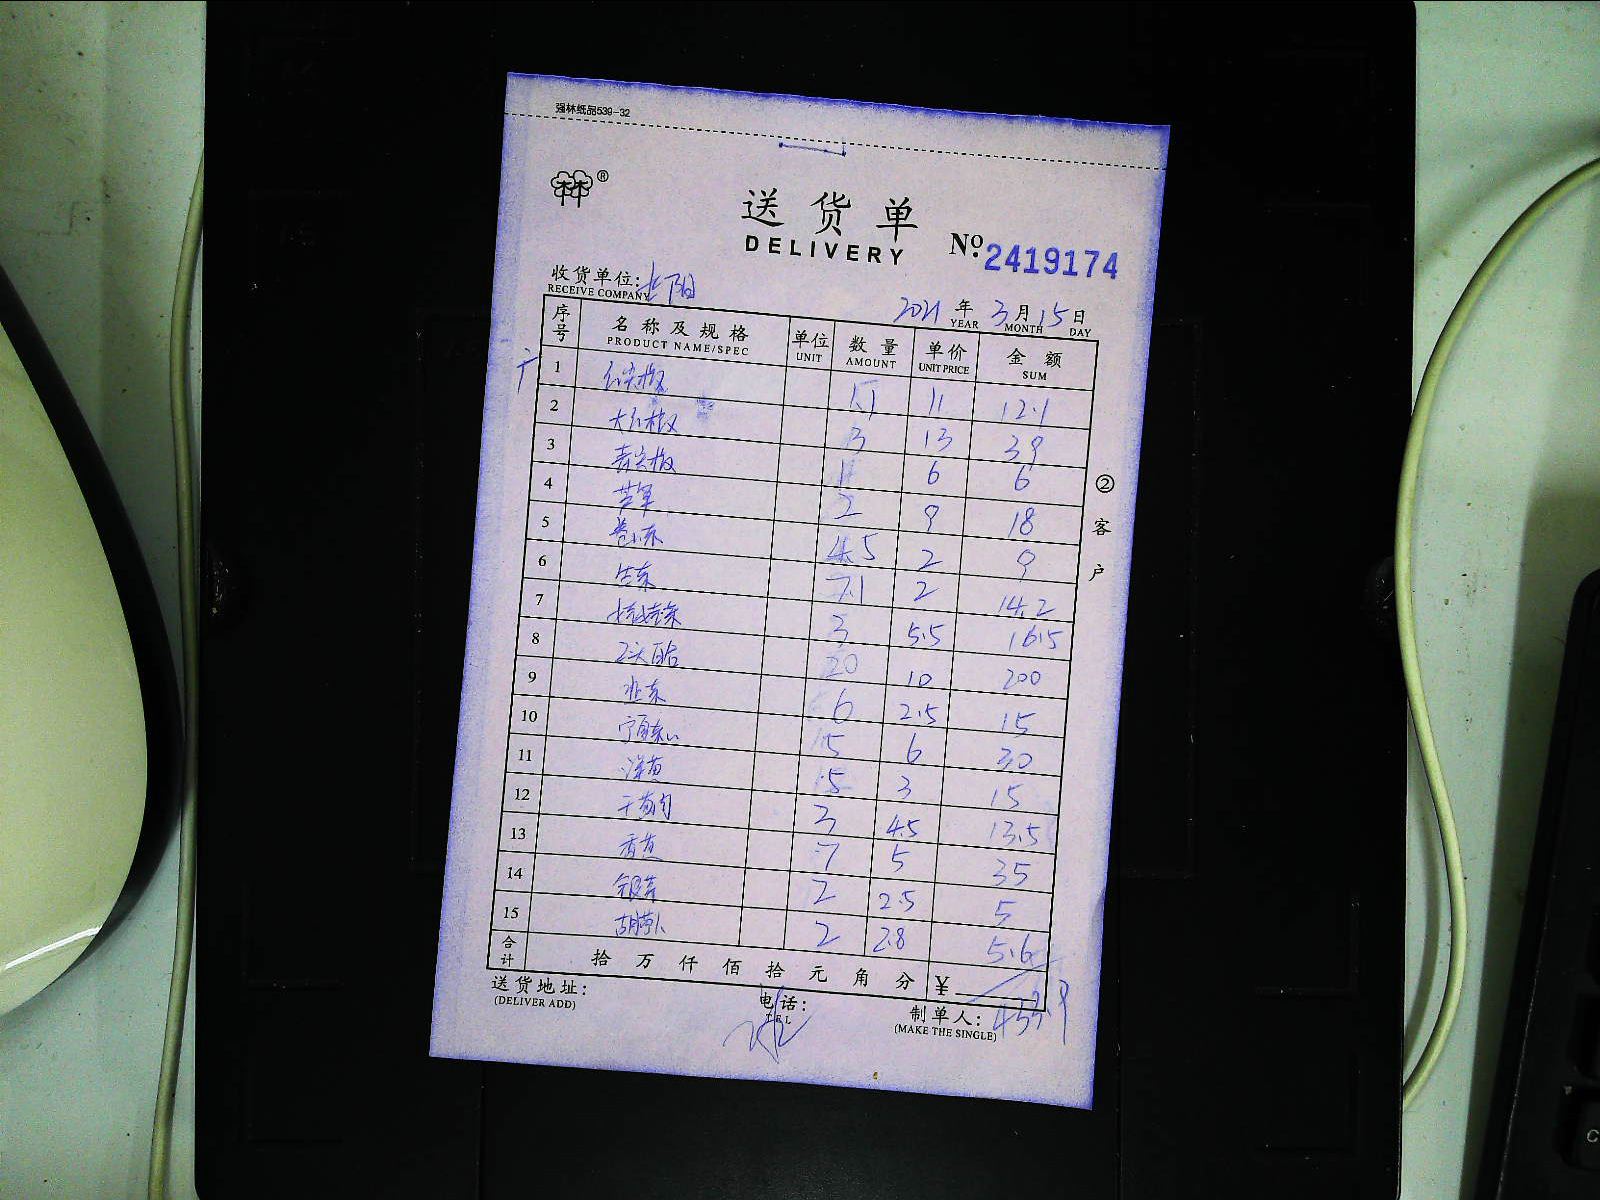 强林纸品539-32
®
送货单
DELIVERY
№ 2419174
收货单位:
RECEIVE COMPANY
2021 年 3 月 15 日
YEAR MONTH DAY
序号 名称及规格 单位 数量 单价 金额
PRODUCT NAME/SPEC UNIT AMOUNT UNIT PRICE SUM
1 红尖椒 1.1 11 12.1
2 大红椒 3 13 39
3 青尖椒 1 6 6
4 2 9 18
5 4.5 2 9
6 生菜 7.1 2 14.2
7 3 5.5 16.5
8 20 10 200
9 韭菜 6 2.5 15
10 5 6 30
11 洋葱 5 3 15
12 3 4.5 13.5
13 7 5 35
14 银芽 2 2.5 5
15 胡萝卜 2 2.8 5.6
合计 拾 万 仟 佰 拾 元 角 分 ¥
送货地址:
(DELIVER ADD)
电话:
TEL
制单人:
(MAKE THE SINGLE)
②客户